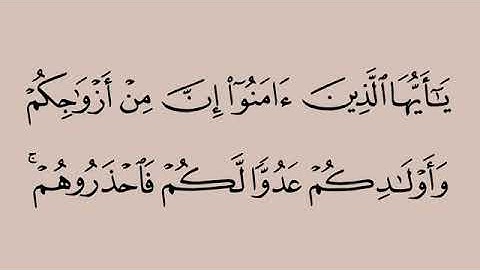 يَـٰٓأَيُّهَا ٱلَّذِينَ ءَامَنُوٓا۟ إِنَّ مِنْ أَزْوَٰجِكُمْ
وَأَوْلَـٰدِكُمْ عَدُوًّا لَّكُمْ فَٱحْذَرُوهُمْ ۚ